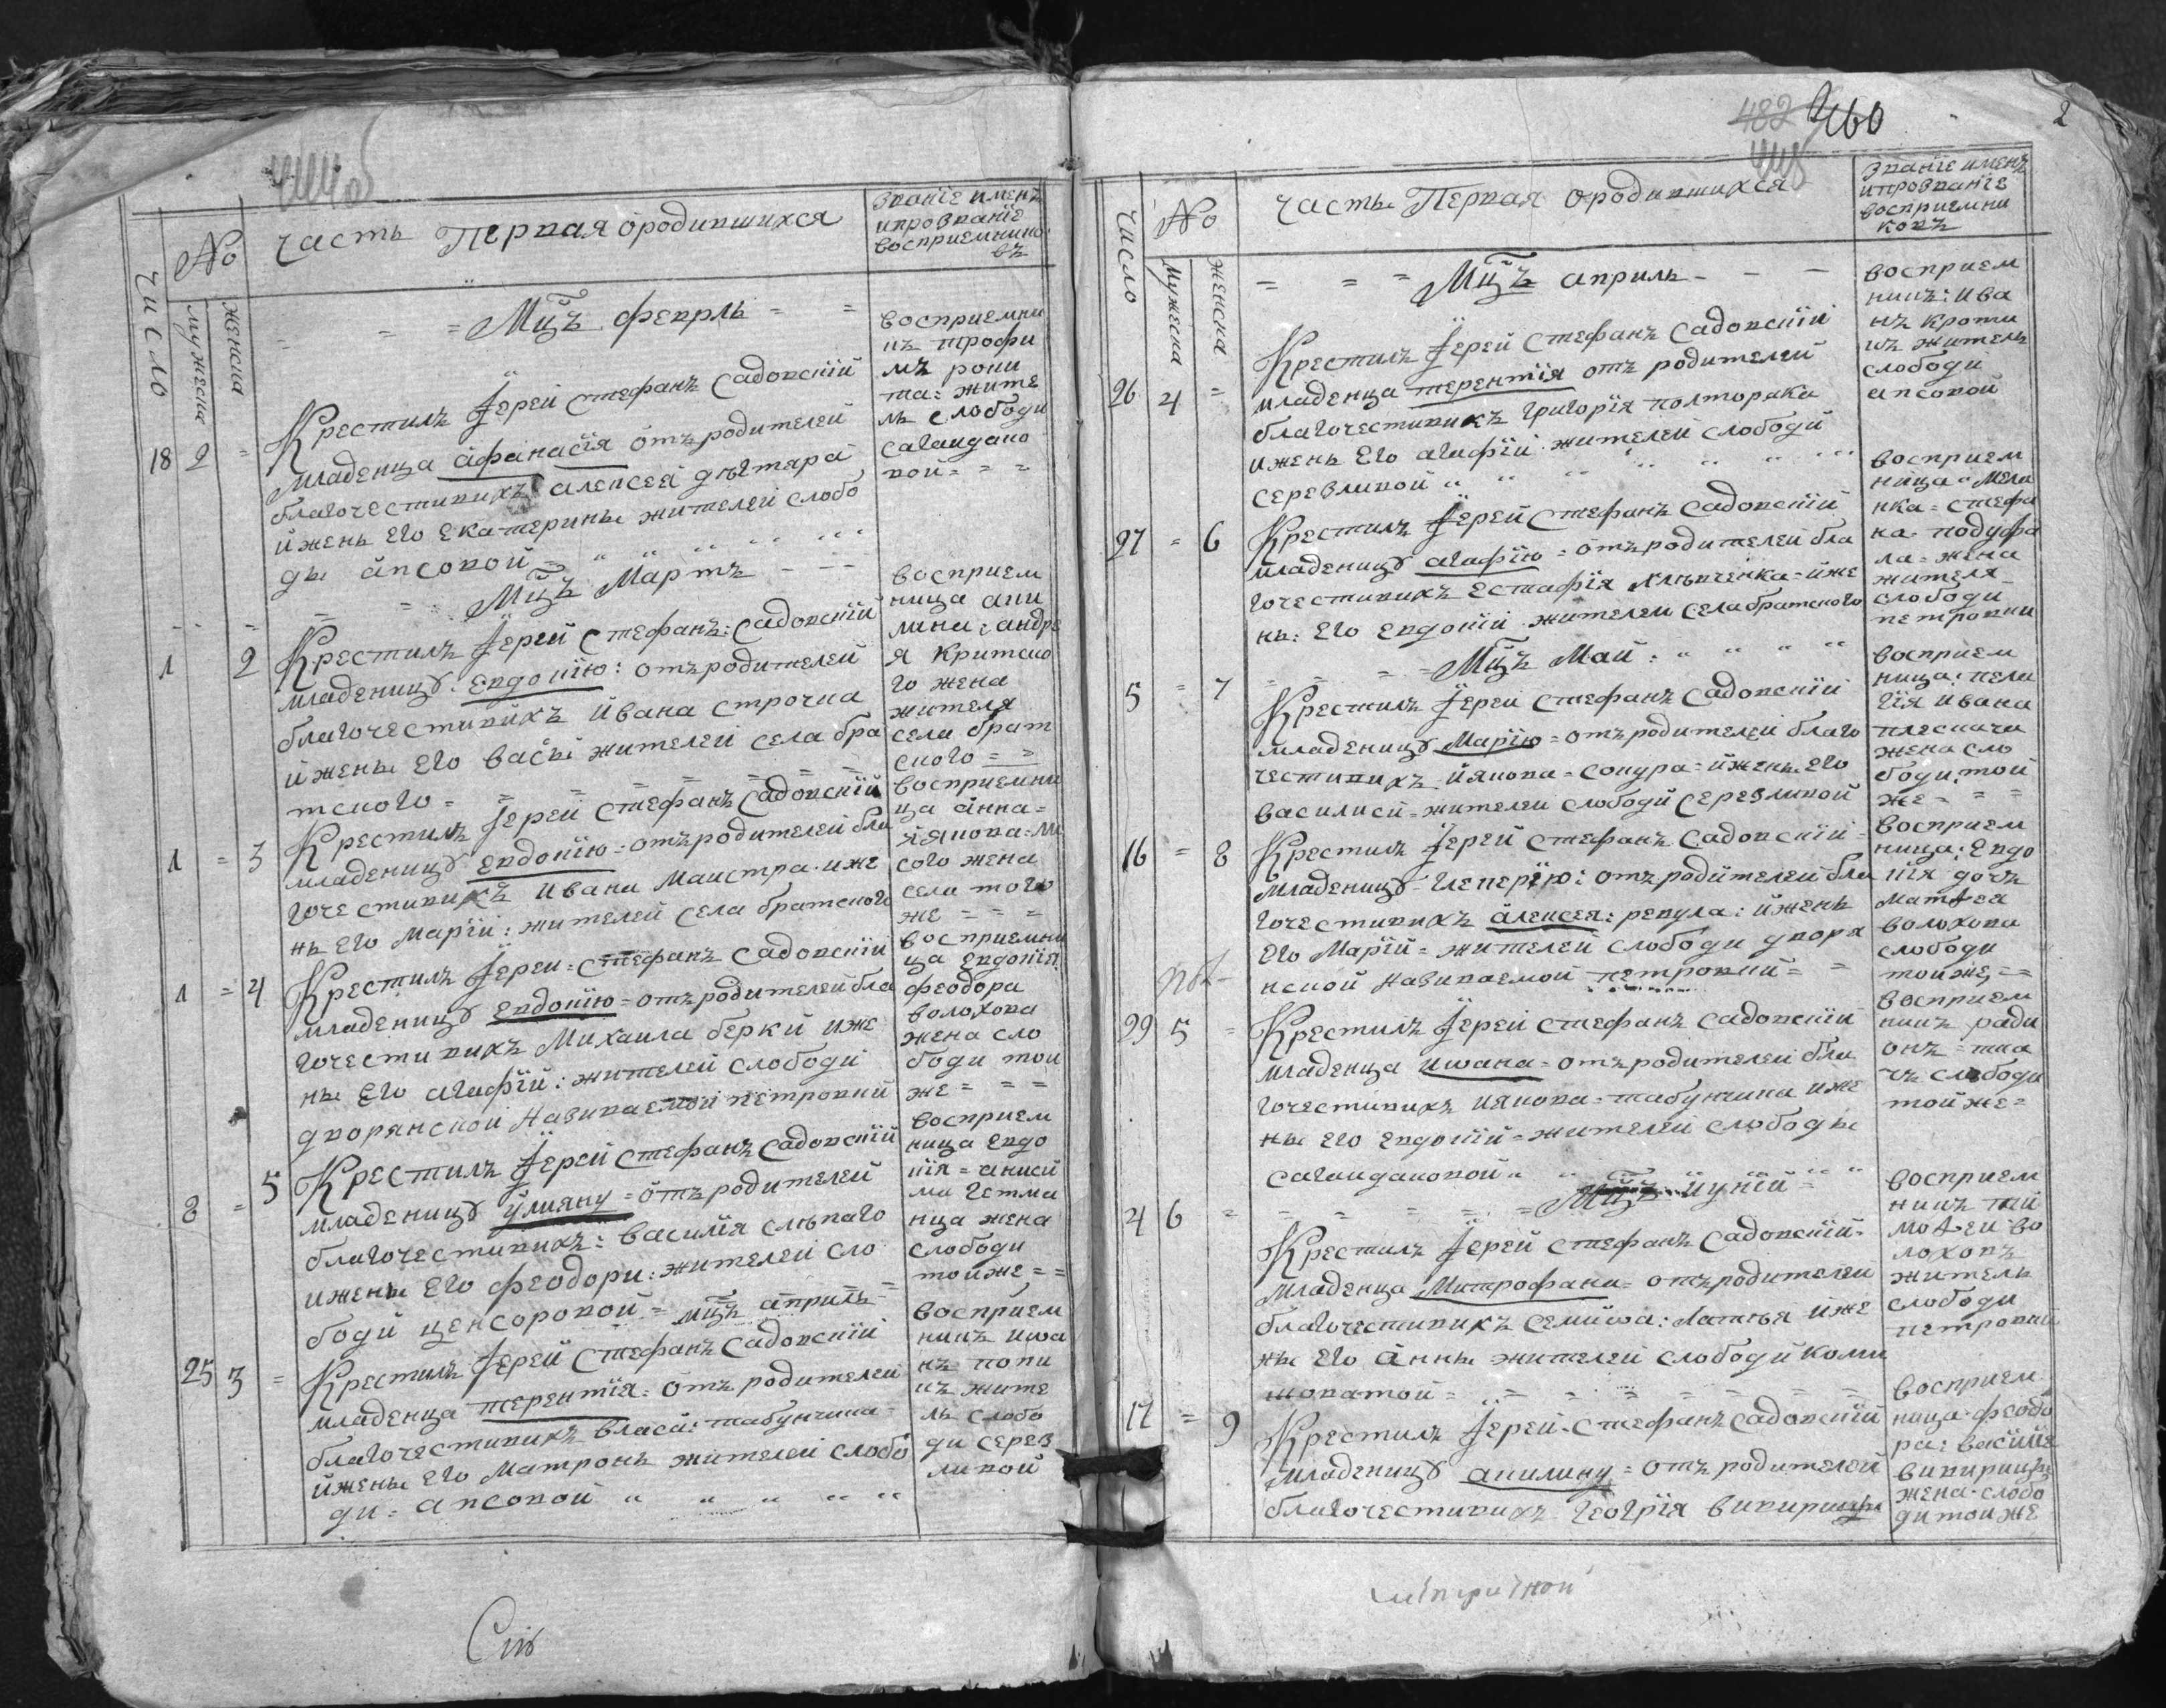 Число
No
Мужеска
Женска
Часть Первая ородившихся
Званїе именъ
ипрозванїе
восприемнико
въ
Мцъ феврль
18 2 =
Крестилъ Їерей Стефанъ Садовскїй
младенца афанасїя отъ родителей
благочестивихъ алексея дегтяра
ижены Его Екатерины жителей слобо
ды апсовой
восприемни
къ трофи
мъ рони
та: жите
ль слободи
сагандако
вой = = =
Мцъ Мартъ
1 2
Крестилъ Їерей Стефанъ: Садовскїй
младеницу: Евдокїю: отъ родителей
благочестивихъ ивана строчка
ижены Его васы жителей села бра
тского =
восприем
ница аки
лина: андре
я критско
го жена
жителя
села брат
ского = =
1 = 3
Крестилъ Їерей Стефанъ Садовскїй
младеницу Евдокїю = отъ родителей бла
гочестивихъ ивана Маистра иже
нь Его Марїи: жителей села братского
восприемни
ца анна =
иякова = ли
сого жена
села того
же = = =
1 = 4
Крестилъ Їерей = Стефанъ Садовскїй
младеницу Евдокїю = отъ родителей бла
гочестивихъ Михаила берки иже
ны Его агафїи: жителей слободи
дворянской Називаемой петровки
восприемни
ца Евдокїя
феодора
волохова
жена сло
боди той
же = = =
8 = 5
Крестилъ Їерей Стефанъ Садовскїй
младеницу улияну = отъ родителей
благочестивихъ: василия слѣпаго
ижены Его феодори: жителей сло
боди ценсоровой = мцъ априль =
восприем
ница Евдо
кїя = аниси
ма гетма
нца жена
слободи
тойже = =
25 3 =
Крестилъ Їерей Стефанъ Садовскїй
младенца терентїя: отъ родителей
благочестивихъ власа: табунчика =
ижены Его Матроны жителей слобо
ди = апсовой
восприем
никъ ива
нъ попи
къ жите
ль слобо
ди серез
ливой
Сїѣ
460
2
Число
No
Мужеска
Женска
Часть Первая ородившихся
Званїе именъ
ипрозванїе
восприемни
ковъ
= = = Мцъ априль - - -
26 4 =
Крестилъ Їерей Стефанъ Садовскїй
младенца терентїя отъ родителей
благочестивихъ григорїя полторака
ижены Его агафїи: жителей слободи
серезливой
восприем
никъ: ива
нъ кроти
къ житель
слободи
апсовой
27 = 6
Крестилъ Їерей Стефанъ Садовскїй
младеницу агафїю = отъ родителей бла
гочестивихъ Естафїя хлѣпченка = иже
нь: Его Евдокїи жителей села братского
восприем
ница = Мела
нка = стефа
на подуфа
ла = жена
жителя
слободи
петровки
Мцъ Май
5 = 7
Крестилъ Їерей Стефанъ Садовскїй
младеницу Марїю = отъ родителей благо
честивихъ иякова = сокура = ижены Его
василиси = жителей слободи серезливой
восприем
ница: пела
гїя ивана
плескача
жена сло
боди: той
же = = =
16 = 8
Крестилъ Їерей Стефанъ Садовскїй =
младеницу = глекерїю: отъ родителей бла
гочестивихъ алексея: ревула: ижены
Его Марїи = жителей слободи дворя
нской називаемой петровки = =
восприем
ница: Евдо
кїя дочъ
матѳея
волохова
слободи
тойже, = =
29 5 =
Крестилъ Їерей Стефанъ Садовскїй
младенца ивана = отъ родителей бла
гочестивихъ иякова = табунчика иже
ны Его Евдокїи = жителей слободы
сагандаковой
восприем
никъ ради
онъ = тка
чъ слободи
тойже =
Мцъ иунїй =
4 6 =
Крестилъ Їерей Стефанъ Садовскїй =
младенца Митрофана = отъ родителей
благочестивихъ семиона: Латыя иже
ны Его анны жителей слободи коми
шоватой =
восприем
никъ тим
моѳей во
лоховъ
житель
слободи
петровки
17 = 9
Крестилъ Їерей = Стефанъ Садовскїй
младеницу акилину = отъ родителей
благочестивихъ Георгїя
восприем
ница феодо
ра: василїе
жена слобо
ди тойже